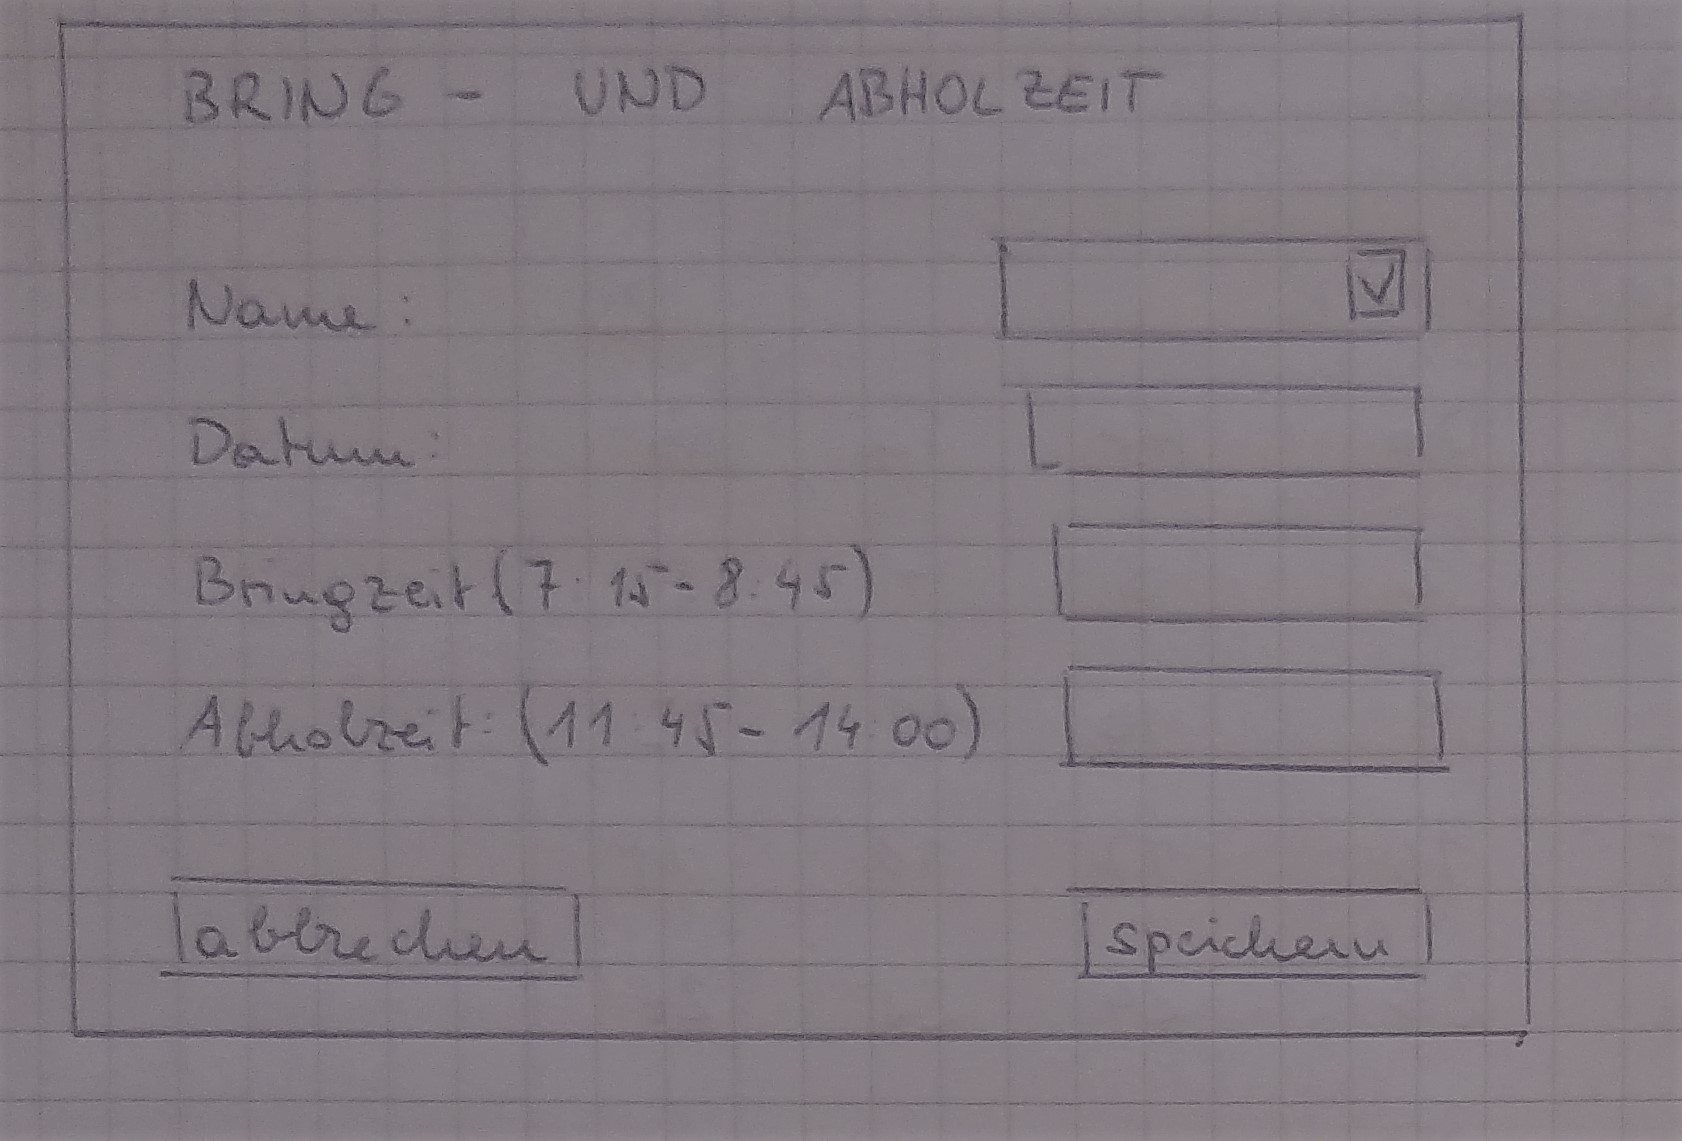 BRING - UND ABHOLZEIT
Name:
Datum:
Bringzeit (7:15 - 8:45)
Abholzeit: (11:45 - 14:00)
abbrechen speichern